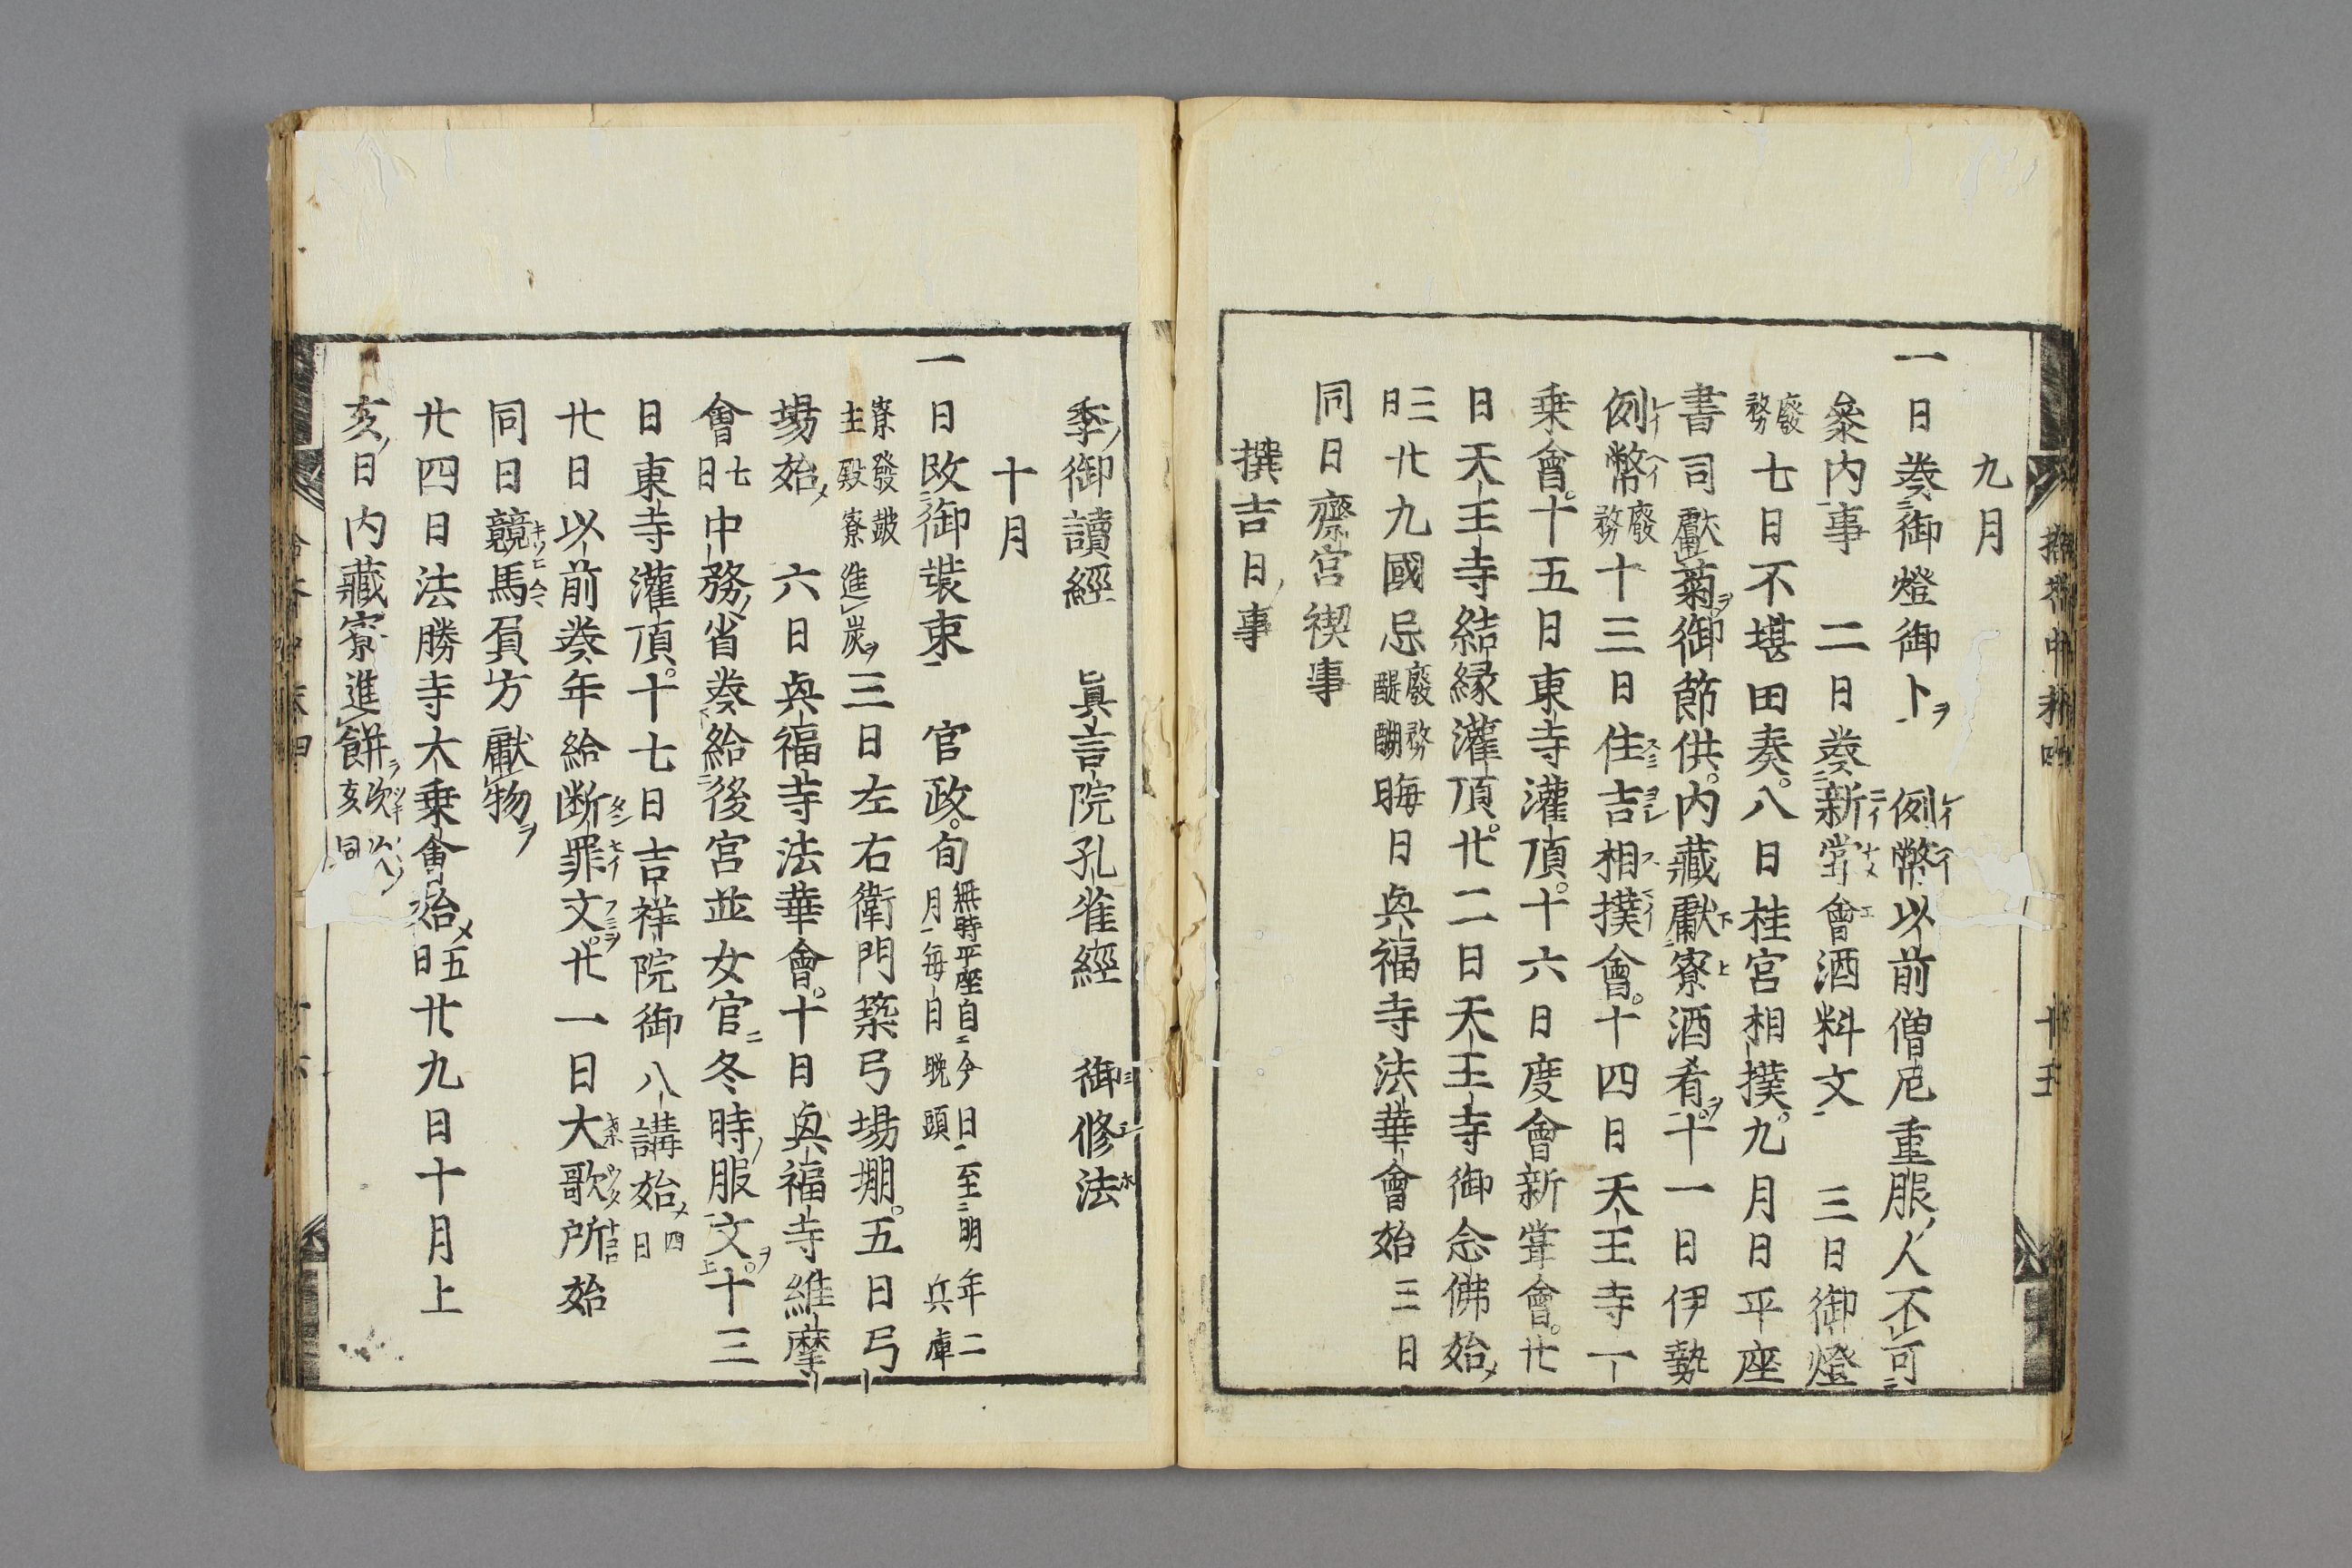 九月
一日奏御燈御卜ヲ 例幣以前僧尼重服ノ人不可
參内事 二日奏新嘗會酒料文 三日御燈
廢務 七日不堪田奏。八日桂宮相撲。九月日平座
書司獻菊ヲ御節供。内藏寮獻酒肴ヲ。十一日伊勢
例幣廢務十三日住吉相撲會。十四日天王寺一
乗會。十五日東寺灌頂。十六日度會新嘗會。廿
日天王寺結縁灌頂。廿二日天王寺御念佛始メ
三日 廿九國忌廢務醍醐晦日興福寺法華會始三日
同日齋宮禊事
撰吉日ノ事
季ノ御讀經 眞言院孔雀經 御修法
十月
一日改御裝束 官政。旬無時平座自今日至明年二月毎日晩頭兵庫
寮發皷主殿寮進炭ヲ三日左右衛門築弓場堋。五日弓
場始メ 六日興福寺法華會。十日興福寺維摩
會七日中務ノ省奏給後宮並女官冬時ノ服文ヲ。十三
日東寺灌頂。十七日吉祥院御八講始メ四日
廿日以前奏年給断罪文ヲ。廿一日大歌所始
同日競馬負方獻物ヲ
廿四日法勝寺大乗會始メ五日廿九日十月上
亥ノ日内藏寮進餅ヲ次次ノ亥同